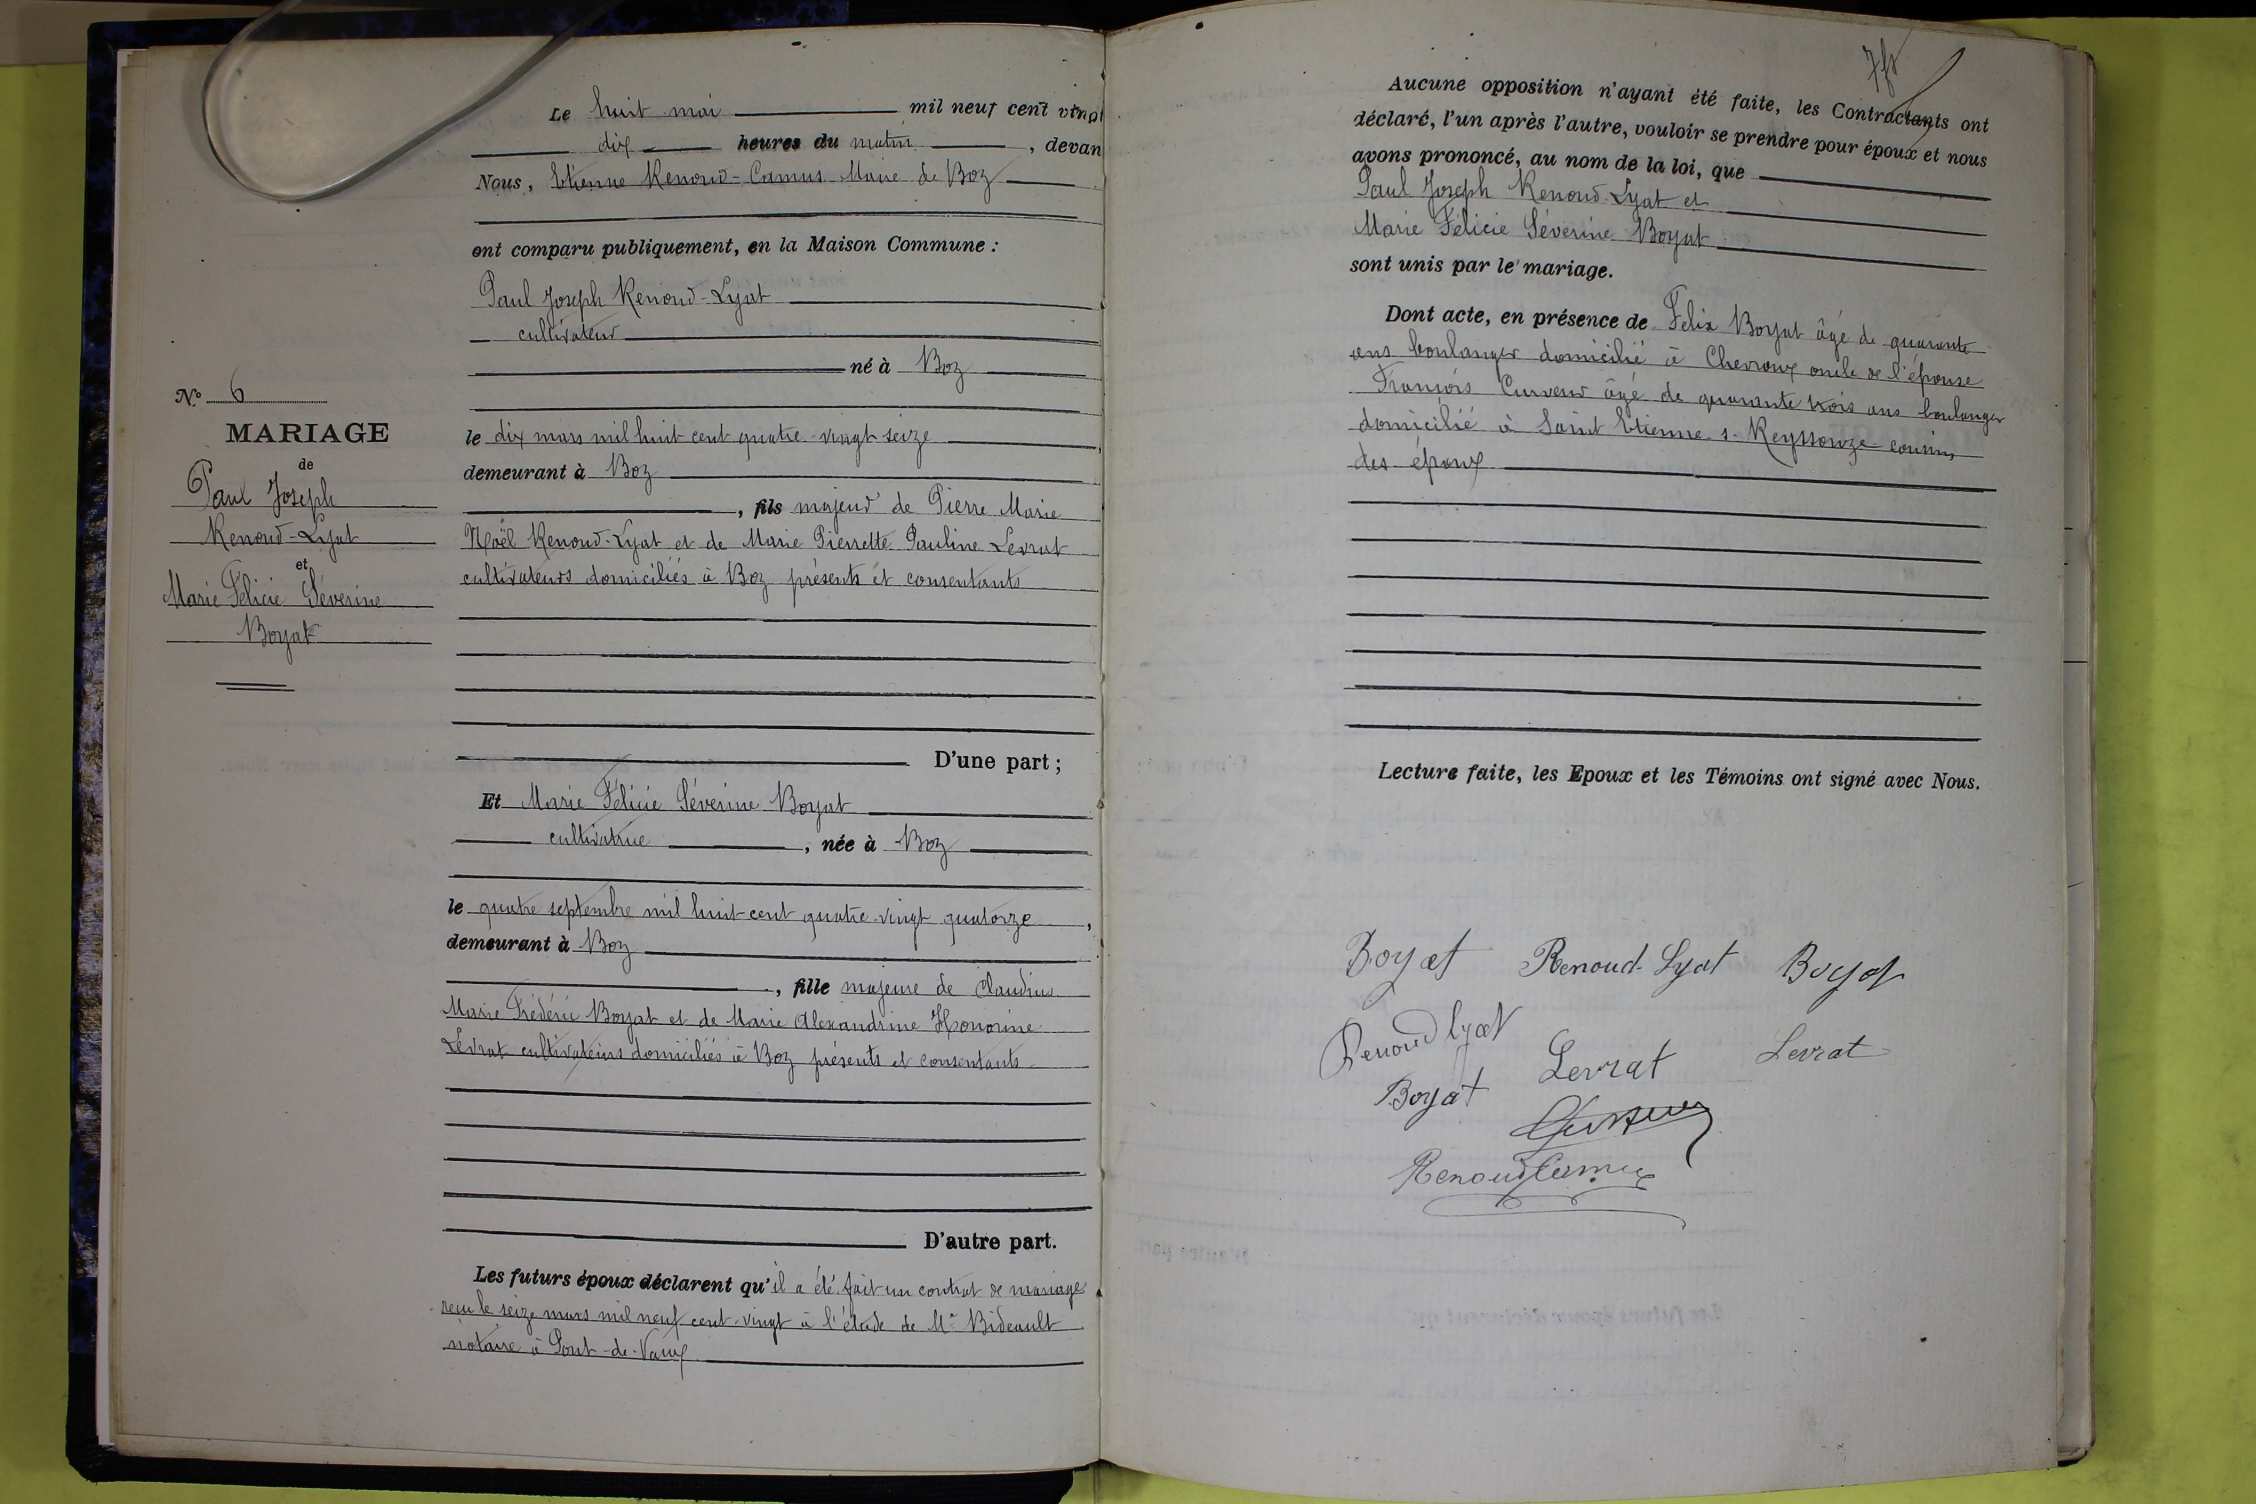 N° 6
MARIAGE
de
Paul Joseph
Renoud-Lyat
et
Marie Félicie Séverine
Boyat
Le huit mai mil neuf cent vingt
dix heures du matin, devan
Nous, Etienne Renoud-Camus Maire de Boz
ont comparu publiquement, en la Maison Commune :
Paul Joseph Renoud-Lyat
cultivateur
né à Boz
le dix mars mil huit cent quatre-vingt seize
demeurant à Boz
, fils majeur de Pierre Marie
Noël Renoud-Lyat et de Marie Pierrette Pauline Levrat
cultivateurs domiciliés à Boz présents et consentants
D'une part ;
Et Marie Félicie Séverine Boyat
cultivatrice, née à Boz
le quatre septembre mil huit cent quatre-vingt quatorze,
demeurant à Boz
, fille majeure de Claudius
Marie Frédéric Boyat et de Marie Alexandrine Honorine
Levrat cultivateurs domiciliés à Boz présents et consentants
D'autre part.
Les futurs époux déclarent qu'il a été fait un contrat de mariage
reçu le seize mars mil neuf cent-vingt à l'étude de Me Bideault
notaire à Pont-de-Vaux
7 fs
Aucune opposition n'ayant été faite, les Contractants ont
déclaré, l'un après l'autre, vouloir se prendre pour époux et nous
avons prononcé, au nom de la loi, que
Paul Joseph Renoud-Lyat et
Marie Félicie Séverine Boyat
sont unis par le mariage.
Dont acte, en présence de Felix Boyat âgé de quarante
ans boulanger domicilié à Chevroux oncle de l'épouse
François Curveur âgé de quarante trois ans boulanger
domicilié à Saint Etienne s. Reyssouze cousin
des époux
Lecture faite, les Epoux et les Témoins ont signé avec Nous.
Boyat Renoud-Lyat Boyat
Renoud lyat Levrat Levrat
Boyat
Renoud Camus